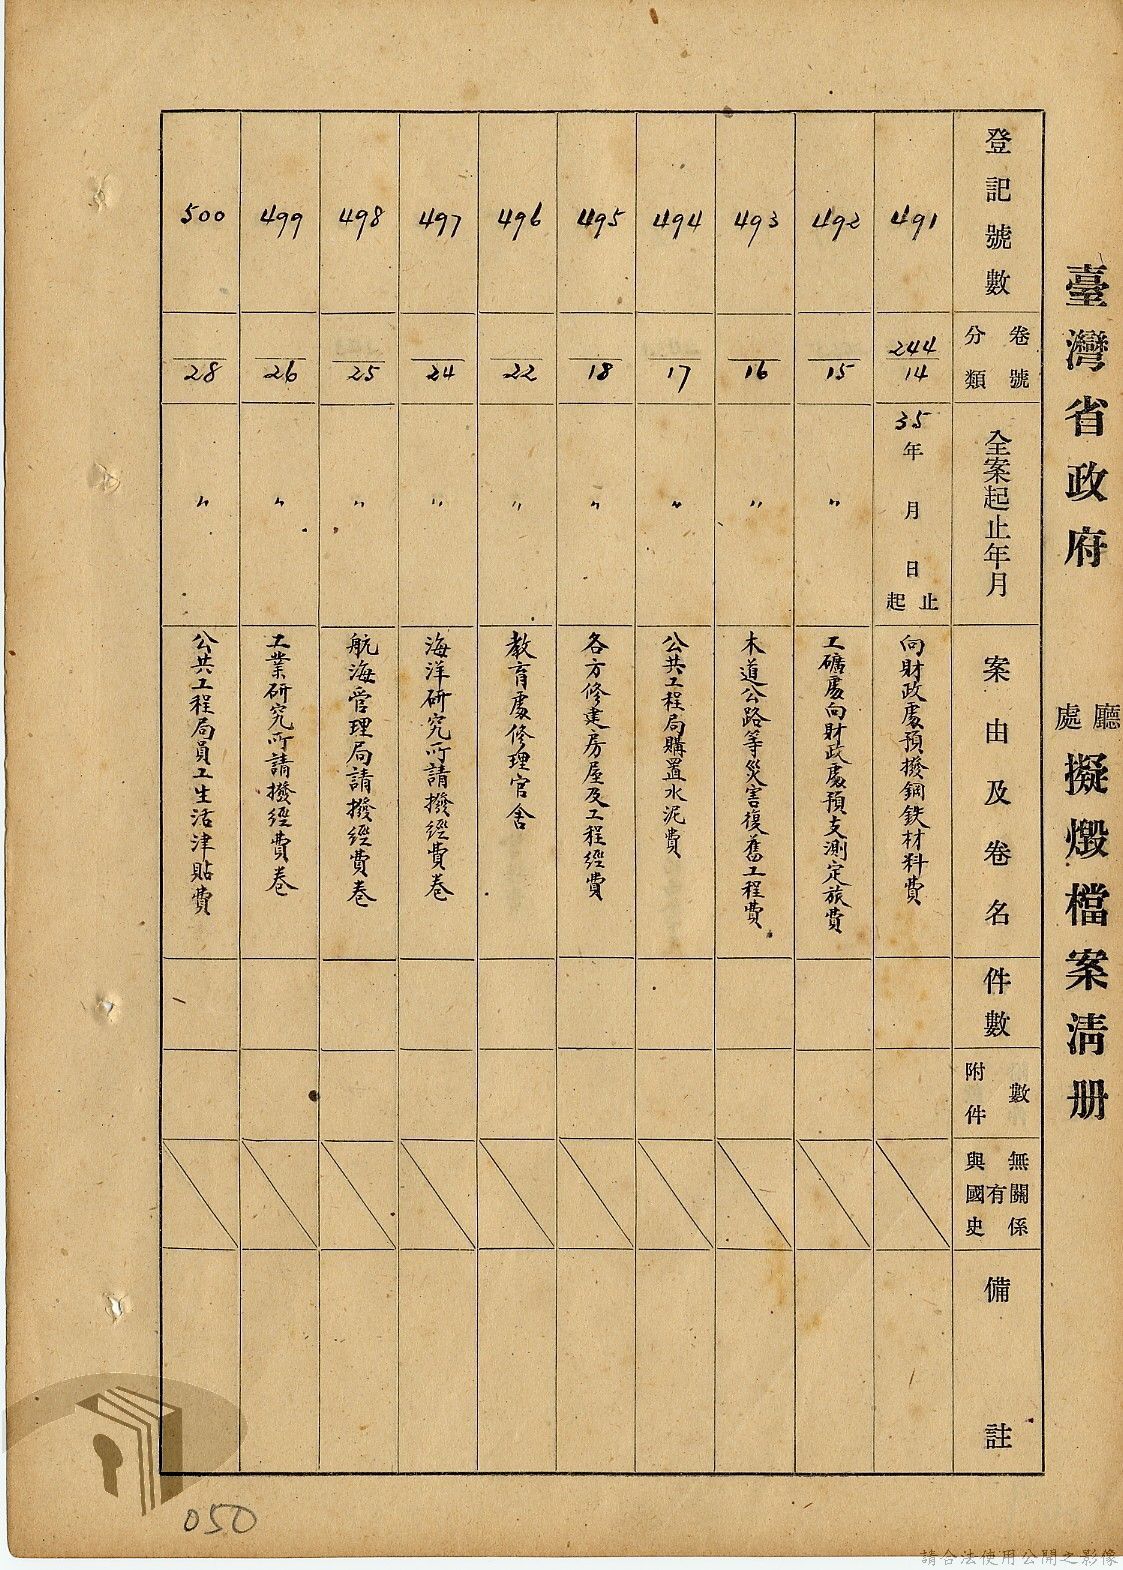 臺灣省政府 廳處 擬燬檔案清册
登記號數
分類 卷號
全案起止年月
案由及卷名
件數
附件數
與國史有無關係
備註
491
244/14
35年 月 日起止
向財政處預撥鋼鉄材料費
492
15
〃
工礦處向財政處預支測定旅費
493
16
〃
木道公路等災害復舊工程費
494
17
〃
公共工程局購置水泥費
495
18
〃
各方修建房屋及工程經費
496
22
〃
教育處修理官舍
497
24
〃
海洋研究所請撥經費卷
498
25
〃
航海管理局請撥經費卷
499
26
〃
工業研究所請撥經費卷
500
28
〃
公共工程局員工生活津貼費
050
請合法使用公開之影像